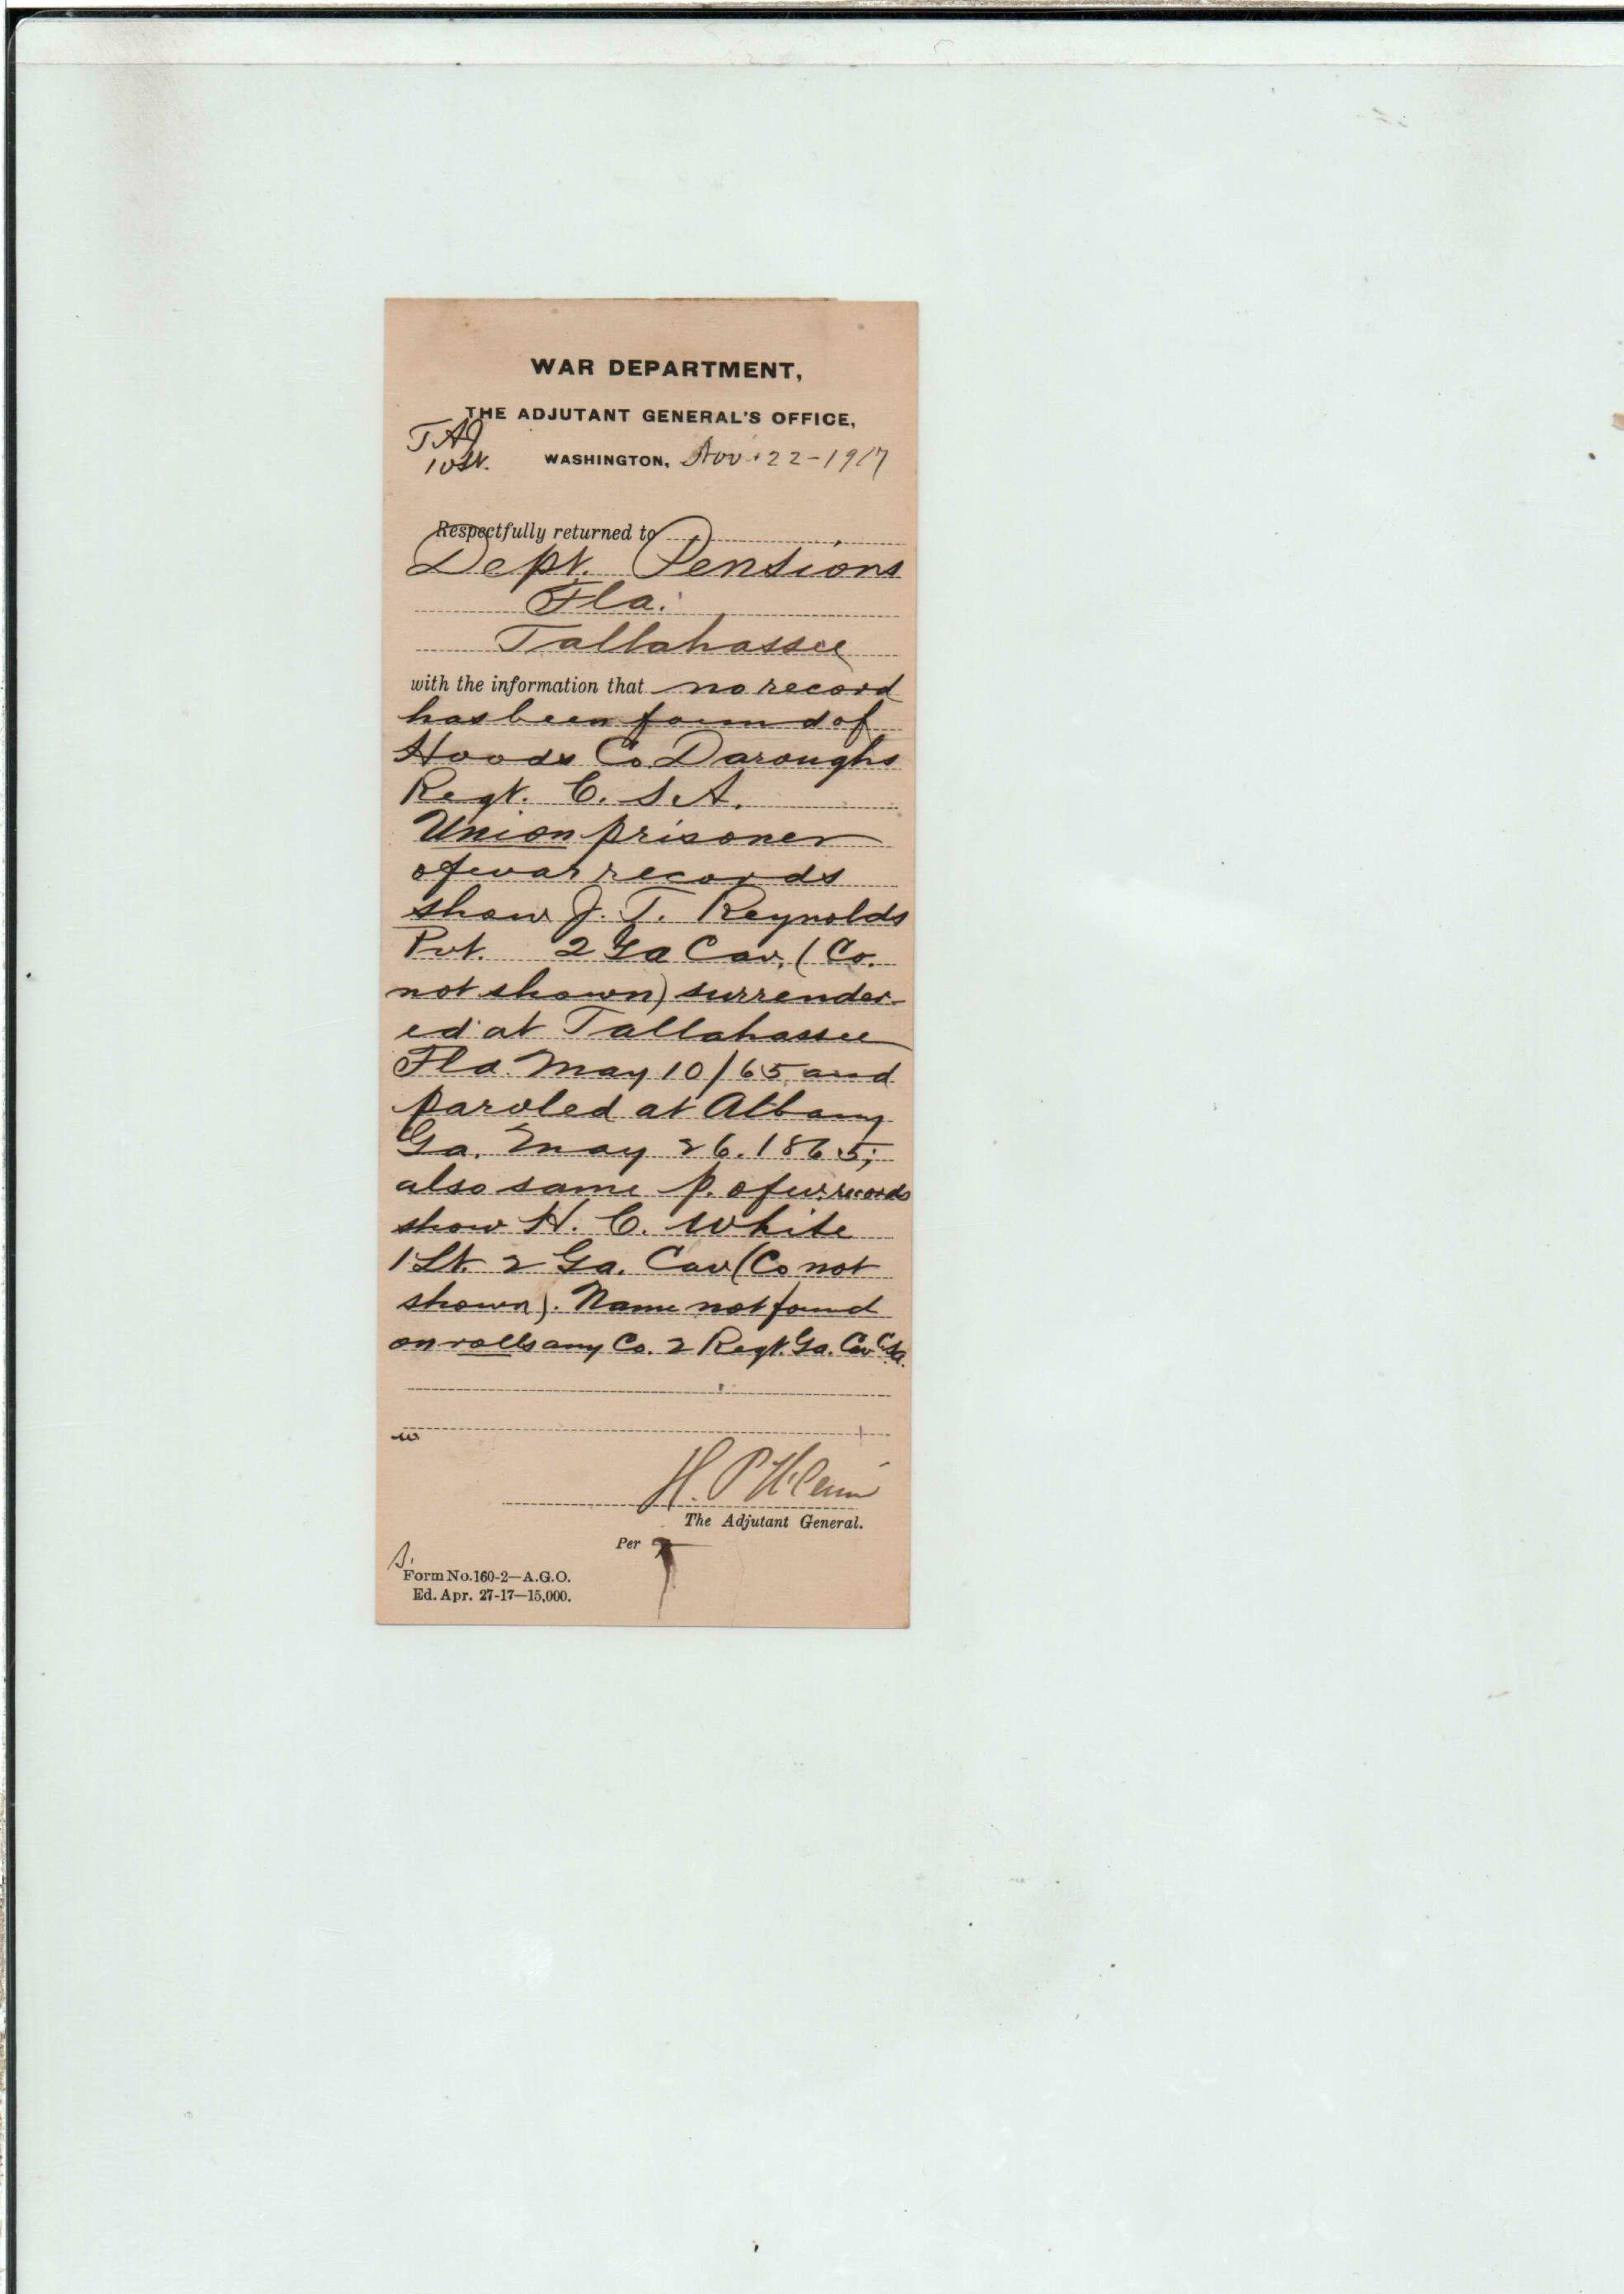 WAR DEPARTMENT,
THE ADJUTANT GENERAL'S OFFICE,
WASHINGTON, Nov. 22-1917
Respectfully returned to
Dept. Pensions
Fla.
Tallahassee
with the information that no record
has been found of
Hoods Co. Daroughs
Regt. C. S. A.
Union prisoner
of war records
show J. T. Reynolds
Pvt. 2 Ga Cav. (Co.
not shown) surrender-
ed at Tallahassee
Fla. May 10/65 and
paroled at Albany
Ga. May 26. 1865;
also same p. of w. records
show H. C. White
1 Lt. 2 Ga. Cav (Co not
shown). Name not found
on rolls any Co. 2 Regt. Ga. Cav C.S.A.
w
H. P.
The Adjutant General.
Per
Form No. 160-2—A.G.O.
Ed. Apr. 27-17—15,000.